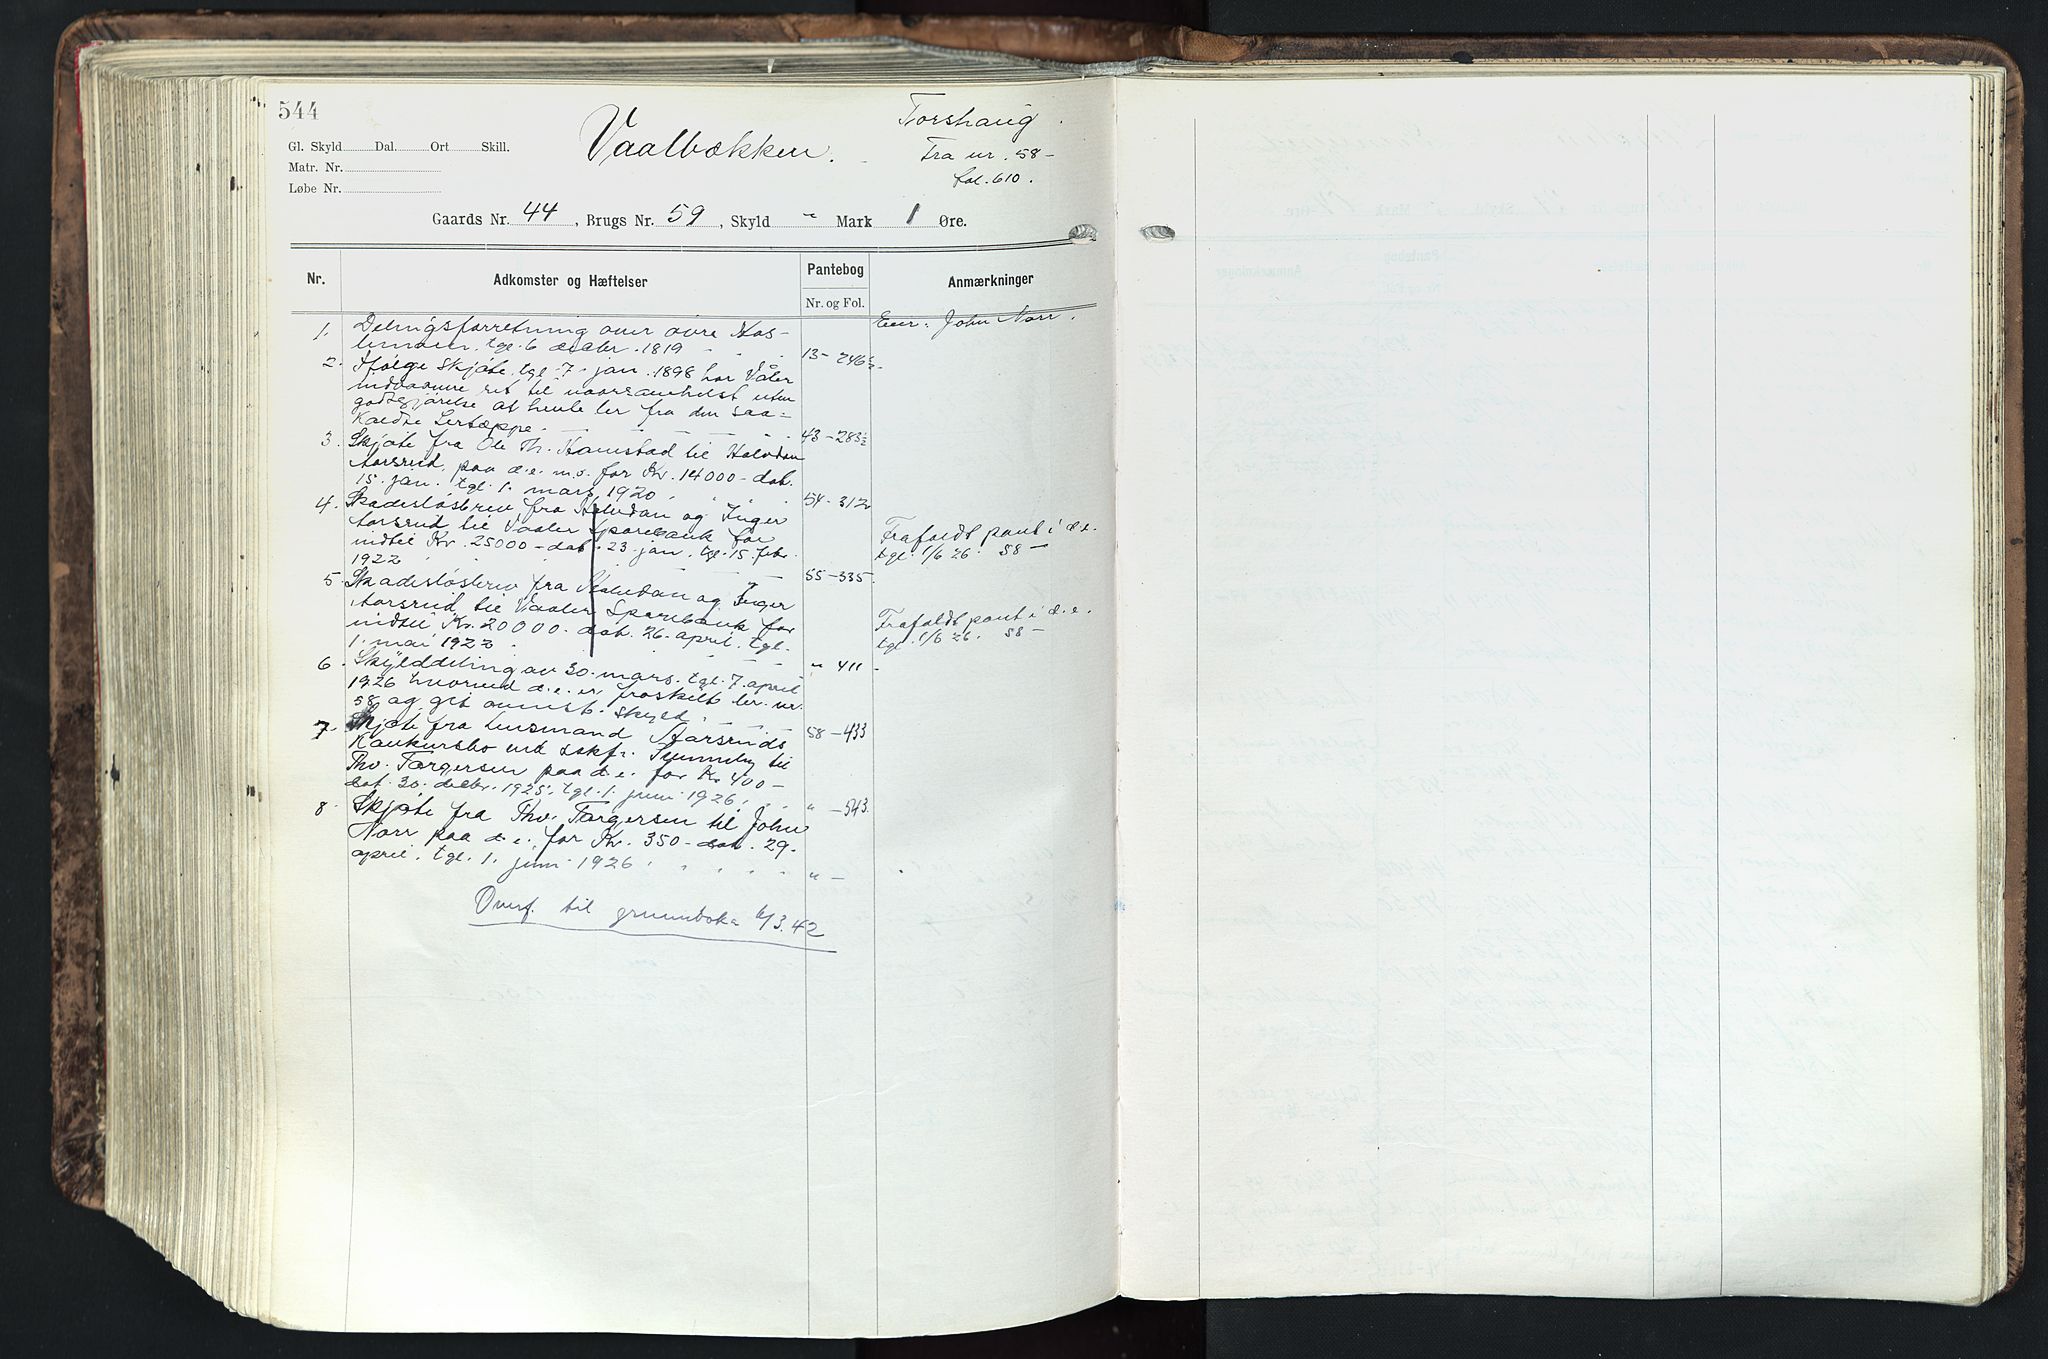 544
Gl. Skyld Dal. Ort Skill.
Matr. Nr.
Løbe Nr.
Vaalbækken.
Torshaug
Fra nr. 58 -
fol. 610.
Gaards Nr. 44, Brugs Nr. 59, Skyld " Mark 1 Øre.
Nr. Adkomster og Hæftelser Pantebog Anmærkninger
Nr. og Fol.
1. Delingsforretning over øvre Has-
lemoen, tgl. 6 decbr. 1819 13 - 246
Eier: John Norr.
2. Ifølge skjøte tgl. 7. jan. 1898 har Våler
indvaanere ret til uten
godtgjørelse at hente ler fra den saa-
kaldte Lertæppe. 43 - 283½
3. Skjøte fra Ole Th. Hamstad til Halvdan
Aarsrud, paa d.e. m.v. for Kr. 14000 - dat.
15. jan. tgl. 1. mars 1920 54 - 312
4. Skadesløsbrev fra Halvdan og Inger
Aarsrud til Vaaler Sparebank for
indtil Kr. 25000 - dat. 23. jan. tgl. 15. febr.
1922 55 - 335
Frafaldt pant i d.e.
tgl. 1/6 26. 58 -
5. Skadesløsbrev fra Halvdan og Inger
Aarsrud til Vaaler Sparebank for
indtil Kr. 20000 - dat. 26. april, tgl.
1. mai 1922 " 411
Frafaldt pant i d.e.
tgl. 1/6 26. 58 -
6. Skylddeling av 30. mars, tgl. 7. april
1926 hvorved d.e. er fraskilt br. nr.
58 og git anmst. skyld. 58 - 433
7. Skjøte fra Lensmand Aarsruds
Konkursbo ved til
Thv. Torgersen paa d.e. for Kr 400 -
dat. 30. decbr. 1925, tgl. 1. juni 1926. " - 543.
8. Skjøte fra Thv. Torgersen til John
Norr paa d.e. for Kr. 350 - dat. 29.
april, tgl. 1. juni 1926 " -
Overf. til grunnboka 6/3.42